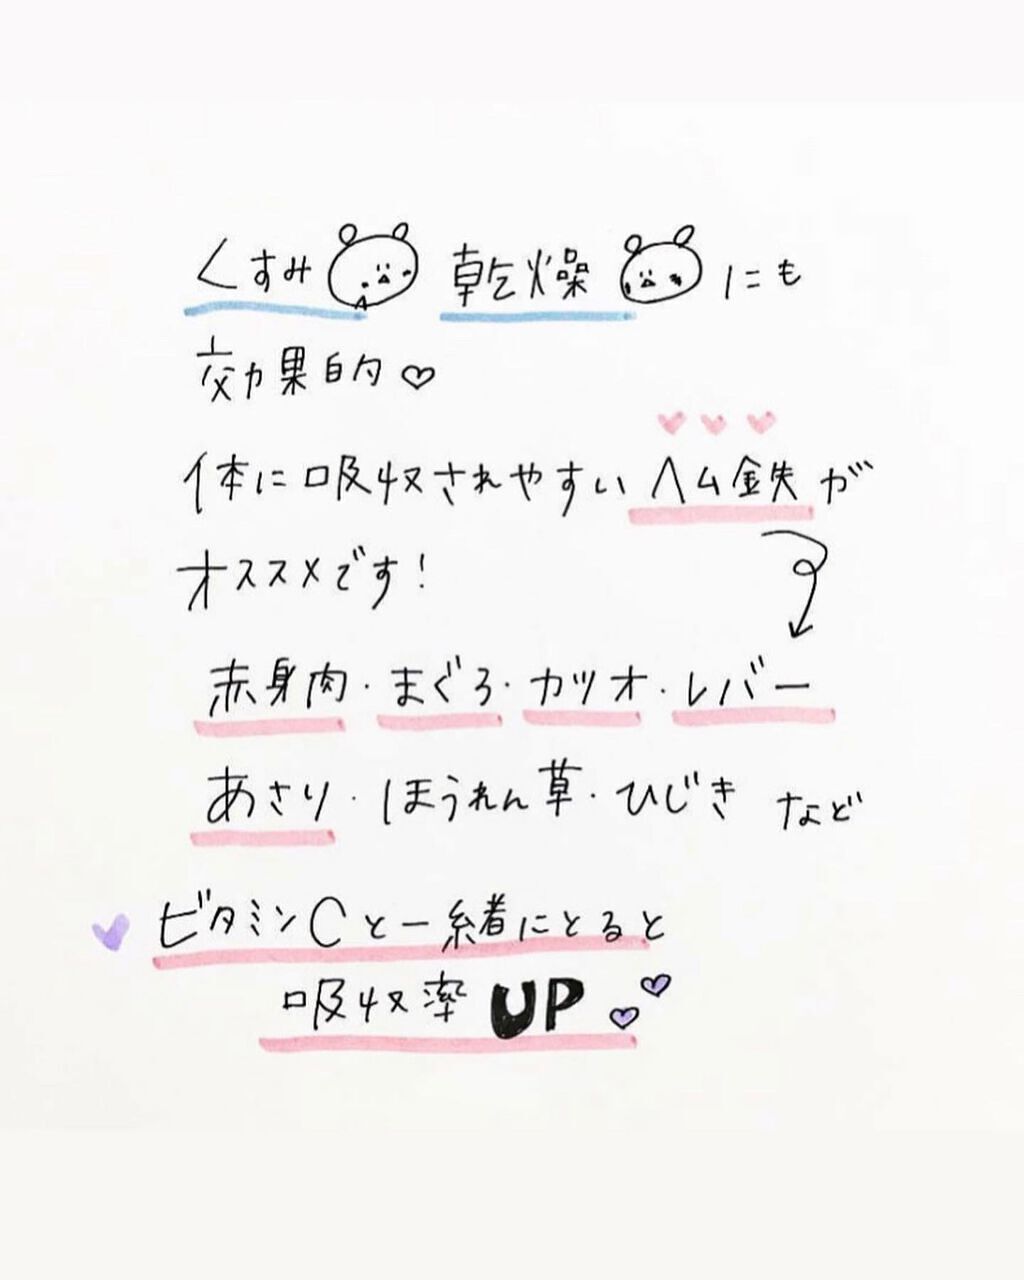 くすみ 乾燥 にも
効果的♡
体に吸収されやすいヘム鉄が
オススメです!
赤身肉・まぐろ・カツオ・レバー
あさり・ほうれん草・ひじき など
ビタミンCと一緒にとると
吸収率UP